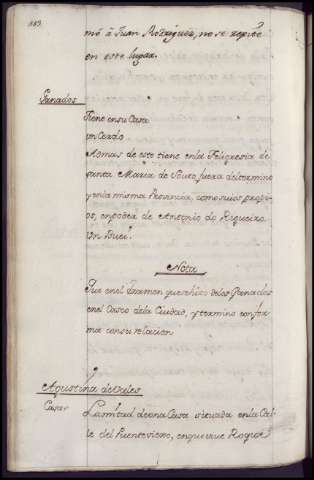 mó á Juan Rodriguez, no se repite
en este lugar.
Ganados
Tiene en su Casa
Un Cerdo
A mas de esto tiene en la Feligresia de
Santa Maria de Souto, fuera del termino
y en la misma Provincia, como suios propri-
os, en poder de Antonio do Rigueiro
Un Buei
Nota
Que en el Examen que se hizo de los Ganados
en el Casco de la Ciudad, y termino confor-
ma con su relacion
Agustina de Vales
Casas
La mitad de una Casa situada en la Cal-
le del Puente viexo, en que vive Roque